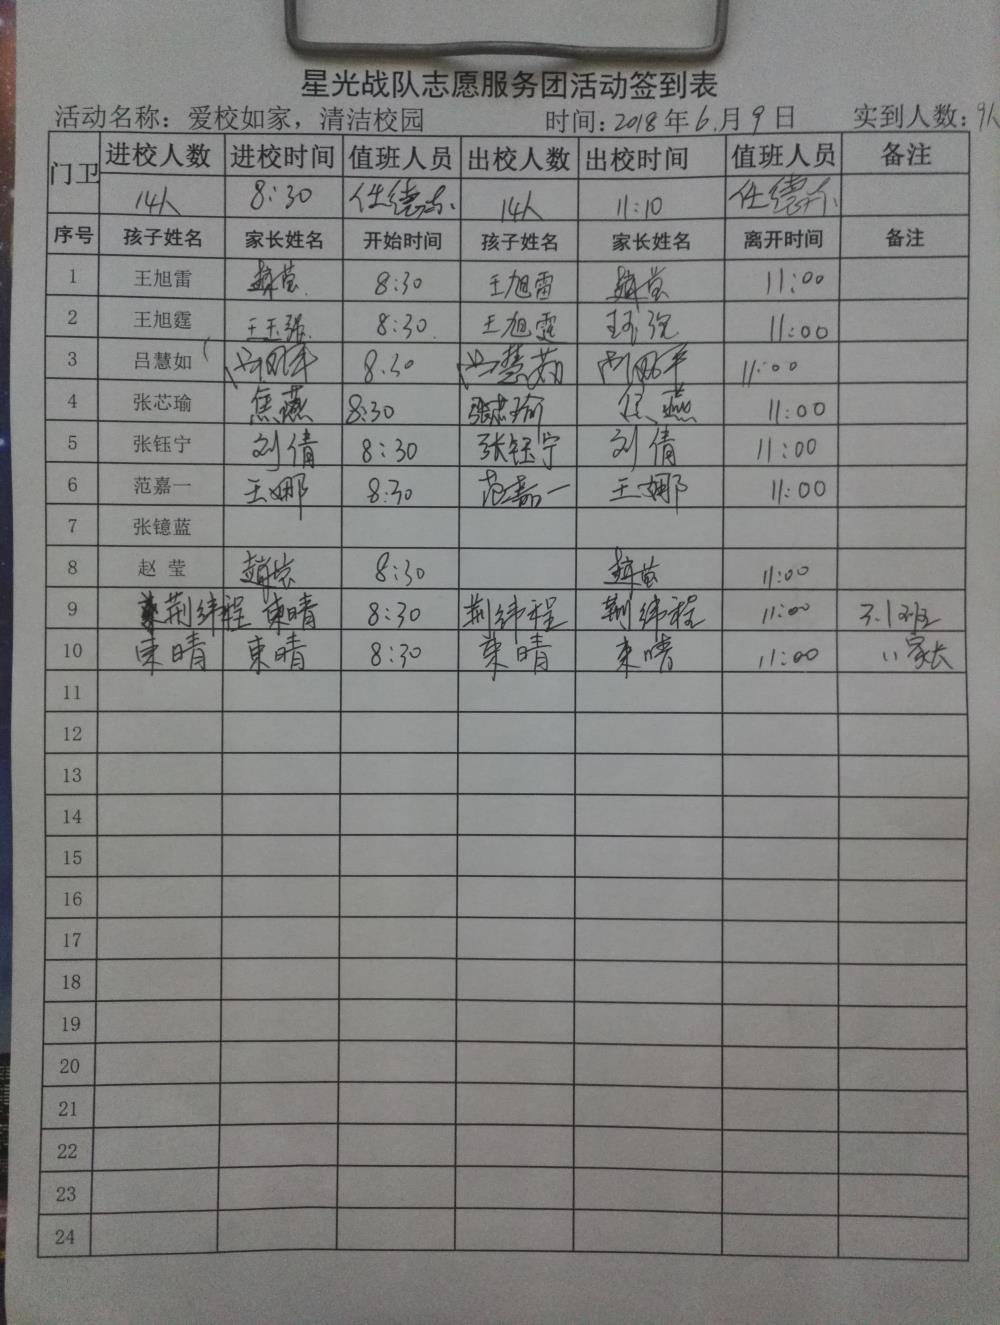 星光战队志愿服务团活动签到表
活动名称：爱校如家，清洁校园 时间：2018年6.月9日 实到人数：9人
门卫 进校人数 进校时间 值班人员 出校人数 出校时间 值班人员 备注
14人 8:30 任德 14人 11:10 任德
序号 孩子姓名 家长姓名 开始时间 孩子姓名 家长姓名 离开时间 备注
1 王旭雷 赵莹 8:30 王旭雷 赵莹 11:00
2 王旭霆 王玉强 8:30 王旭霆 王玉强 11:00
3 吕慧如 8:30 吕慧茹 11:00
4 张芯瑜 焦燕 8:30 张芯瑜 焦燕 11:00
5 张钰宁 刘倩 8:30 张钰宁 刘倩 11:00
6 范嘉一 王娜 8:30 范嘉一 王娜 11:00
7 张镱蓝
8 赵 莹 赵莹 8:30 赵莹 11:00
9 荆纬程 束晴 8:30 荆纬程 荆纬程 11:00 3.1班
10 束晴 束晴 8:30 束晴 束晴 11:00 11家长
11
12
13
14
15
16
17
18
19
20
21
22
23
24